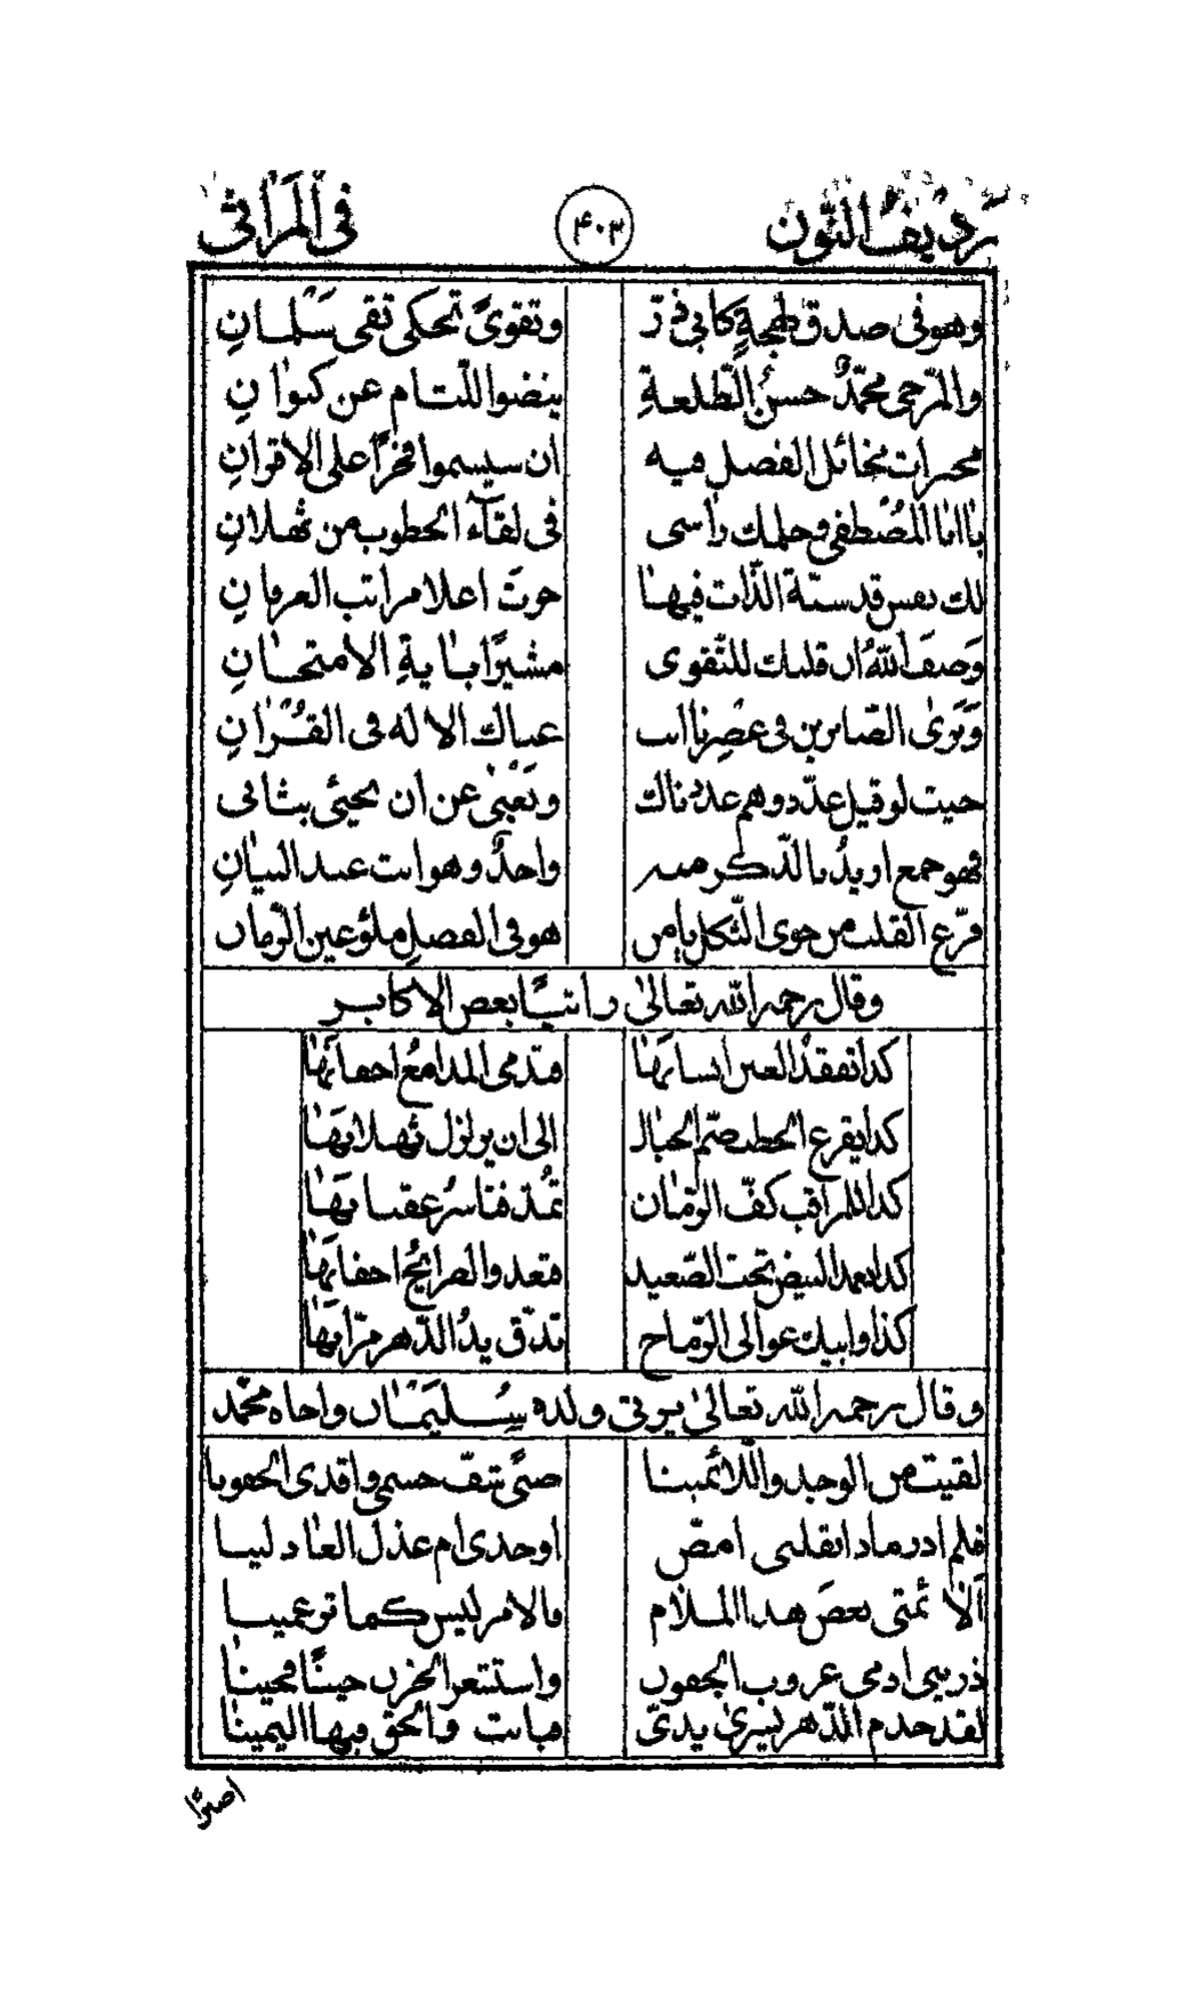 رديف النّون ۴۰۲ في المراثي
وهو في صدق لهجةٍ كابي ذرّ وتقوىً تحكي تقى سَلمانِ
والمرّجى محمّدٌ حسنُ الطّلعةِ ينضوا اللّثام عن كيوانِ
مخائل الفضل فيه ان سيسموا فخرًا على الاقرانِ
يا ابا المُصْطفى وحلمك راسى في لقآء الخطوب من ثهلانِ
لك نفس قدسيّة الذّات فيها حوتَ اعلا مراتب العرفانِ
وَصفَ اللهُ ان قلبك للتّقوى مشيرًا باٰيةِ الامتحانِ
وَيَرىٰ الصّابرين في عصْرنا انت عناك الاله في القُرْاٰنِ
حيث لو قيل عدّدوهم عددناك ونَعْيىٰ عن ان يجيئى بثانى
فهو جمع اريدُ بالذّكر منه واحدٌ وهو انت عند البيانِ
فرّع القلب من جوى الثّكل يا من هو في الفضل ملؤ عين الزّمان
وقال رحمه الله تعالىٰ راثيًا بعض الاكابر
كذا تفقدُ العين انسانهٰا فتدمى المدامعُ اجفانهٰا
كذا يقرع الخطب صمّ الجبال الى ان يزلزل ثهلانهٰا
كذا للمراقب كفّ الزّمان تمُدّ فتاسرُ عقبانهٰا
كذا يغمد البيض تحت الصّعيد فتغدو الضرائحُ اجفانهٰا
كذا وابيك عوالى الرّماح تدّق يدُ الدّهر مرّانهٰا
وقال رحمه الله تعالىٰ يرثي ولده سُليمٰان واخاه محمّد
لقيت من الوجد واللّائمينا ضنًى شفّ جسمي واقذى الجفونا
فلم ادر ماذا بقلبى امضّ اوجدى ام عذل العٰاذلينا
الا ئمتى بعضَ هذا الملام فالامر ليس كما تزعمينا
ذرينى ادمى غروب الجفون واستشعر الحزن حينًا فحينا
لقد جذم الدّهر يسرىٰ يدىّ فبانت والحق فيها اليمينا